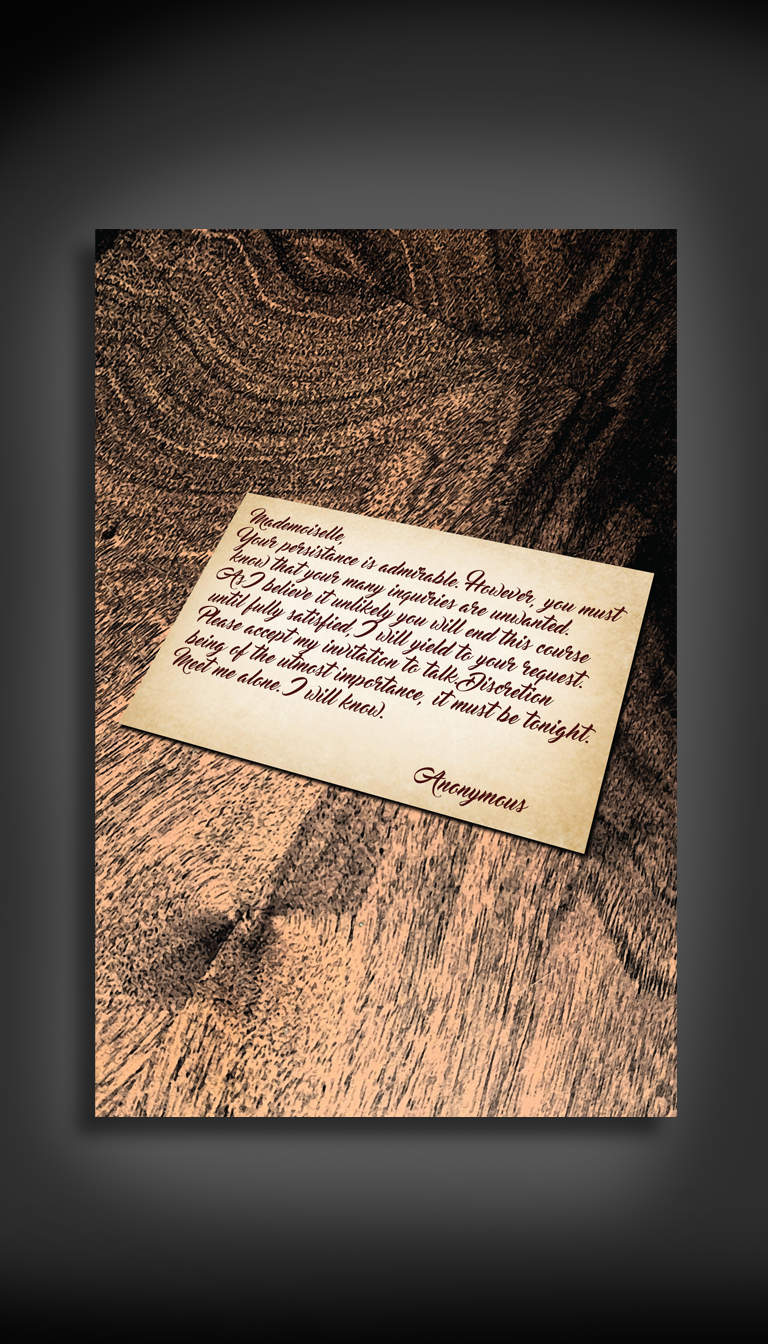 Mademoiselle,
Your persistance is admirable. However, you must
know that your many inquiries are unwanted.
As I believe it unlikely you will end this course
until fully satisfied, I will yield to your request.
Please accept my invitation to talk. Discretion
being of the utmost importance, it must be tonight.
Meet me alone. I will know.
Anonymous